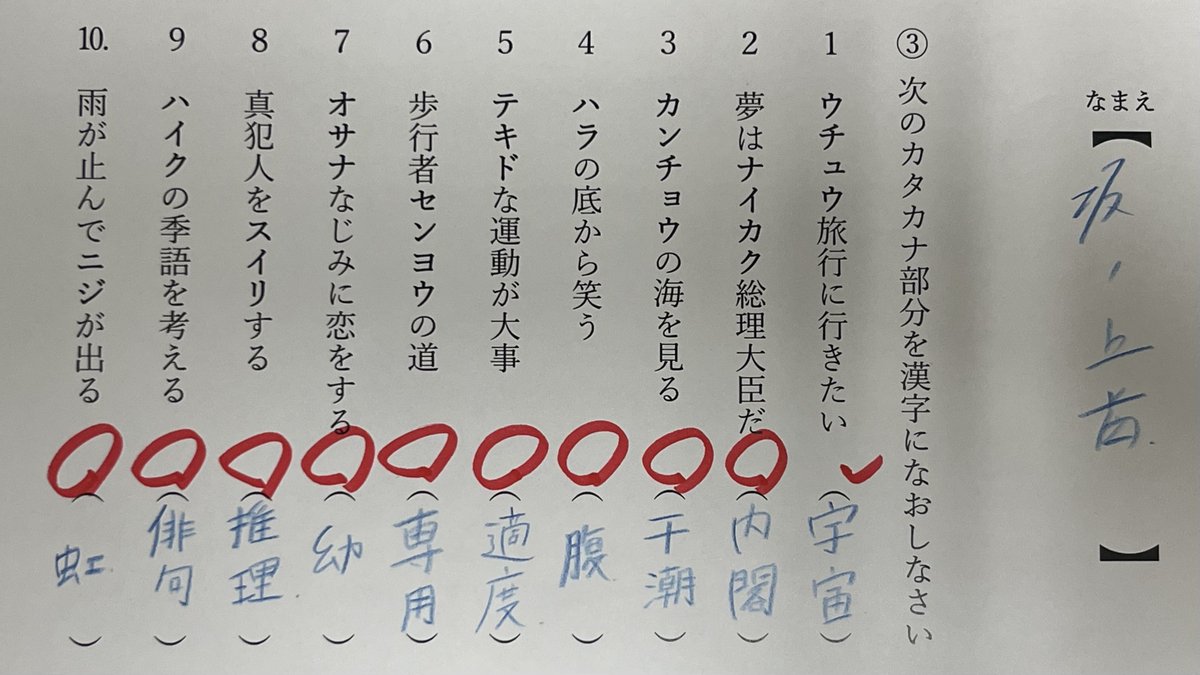 なまえ【坂ノ上茜】
③ 次のカタカナ部分を漢字になおしなさい
1 ウチュウ旅行に行きたい（宇宙）
2 夢はナイカク総理大臣だ（内閣）
3 カンチョウの海を見る（干潮）
4 ハラの底から笑う（腹）
5 テキドな運動が大事（適度）
6 歩行者センヨウの道（専用）
7 オサナなじみに恋をする（幼）
8 真犯人をスイリする（推理）
9 ハイクの季語を考える（俳句）
10. 雨が止んでニジが出る（虹）